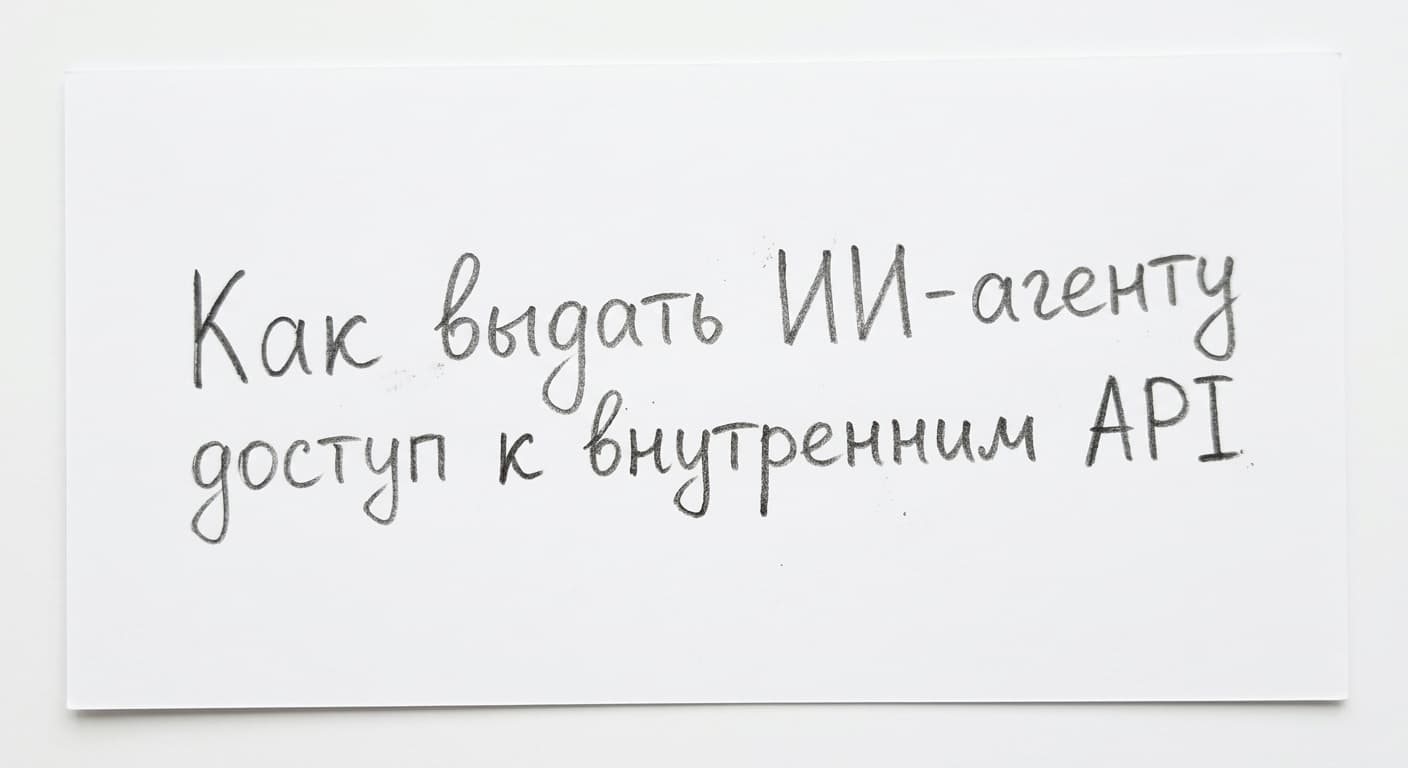 Как выдать ИИ-агенту
доступ к внутренним API